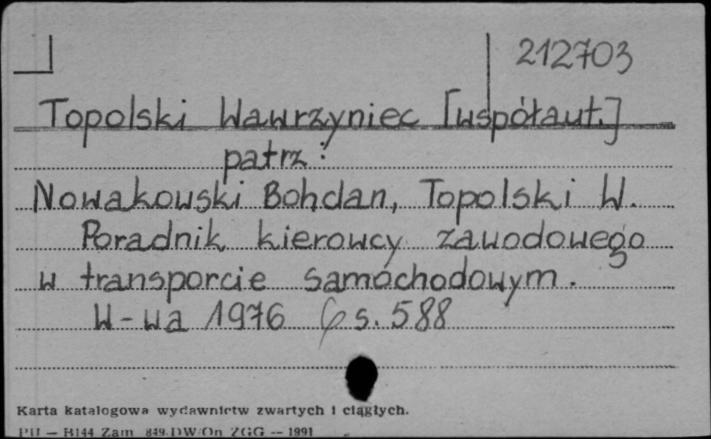 212703
Topolski Wawrzyniec [współaut.]
patrz:
Nowakowski Bohdan, Topolski W.
Poradnik kierowcy zawodowego
w transporcie samochodowym.
W-wa 1976 s. 588
Karta katalogowa wydawnictw zwartych i ciągłych.
PU — H144 Zam. 849 DW/On ZGG — 1991